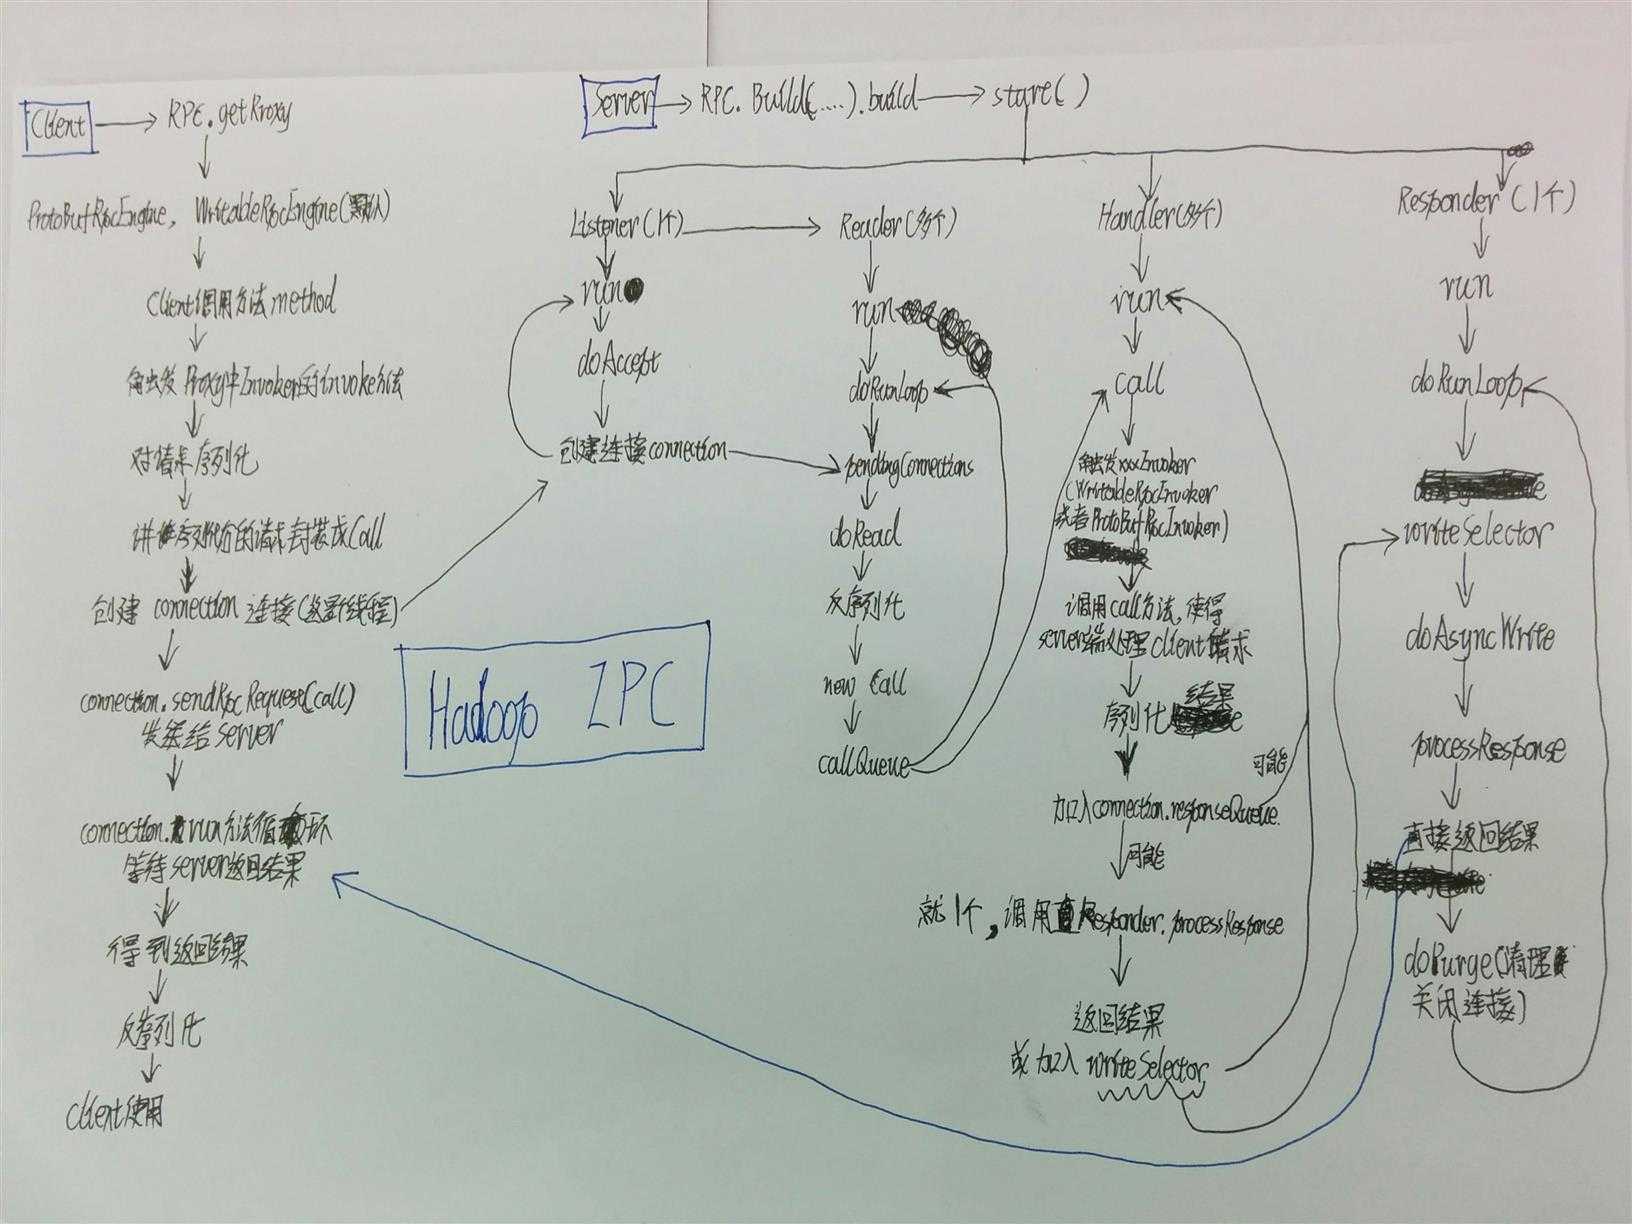 Client
RPC.getProxy
ProtoBufRpcEngine, WritableRpcEngine(默认)
Client调用方法method
触发Proxy中Invoker的invoke方法
对请求序列化
讲序列化的请求封装成Call
创建 connection 连接(线程)
connection.sendRpcRequest(call)
发送给server
connection. run方法循环
等待server返回结果
得到返回结果
反序列化
Client使用
Hadoop IPC
Server
RPC.Build(....).build
start()
Listener(1个)
run
doAccept
创建连接connection
Reader(多个)
run
doRunLoop
pendingConnections
doRead
反序列化
new Call
callQueue
Handler(多个)
run
call
触发xxxInvoker
(WritableRpcInvoker
或者ProtoBufRpcInvoker)
调用call方法,使得
server端处理client请求
序列化结果
加入connection.responseQueue
可能
可能
就1个,调用Responder.processResponse
返回结果
或加入writeSelector
Responder(1个)
run
doRunLoop
writeSelector
doAsyncWrite
processResponse
直接返回结果
doPurge(清理
关闭连接)